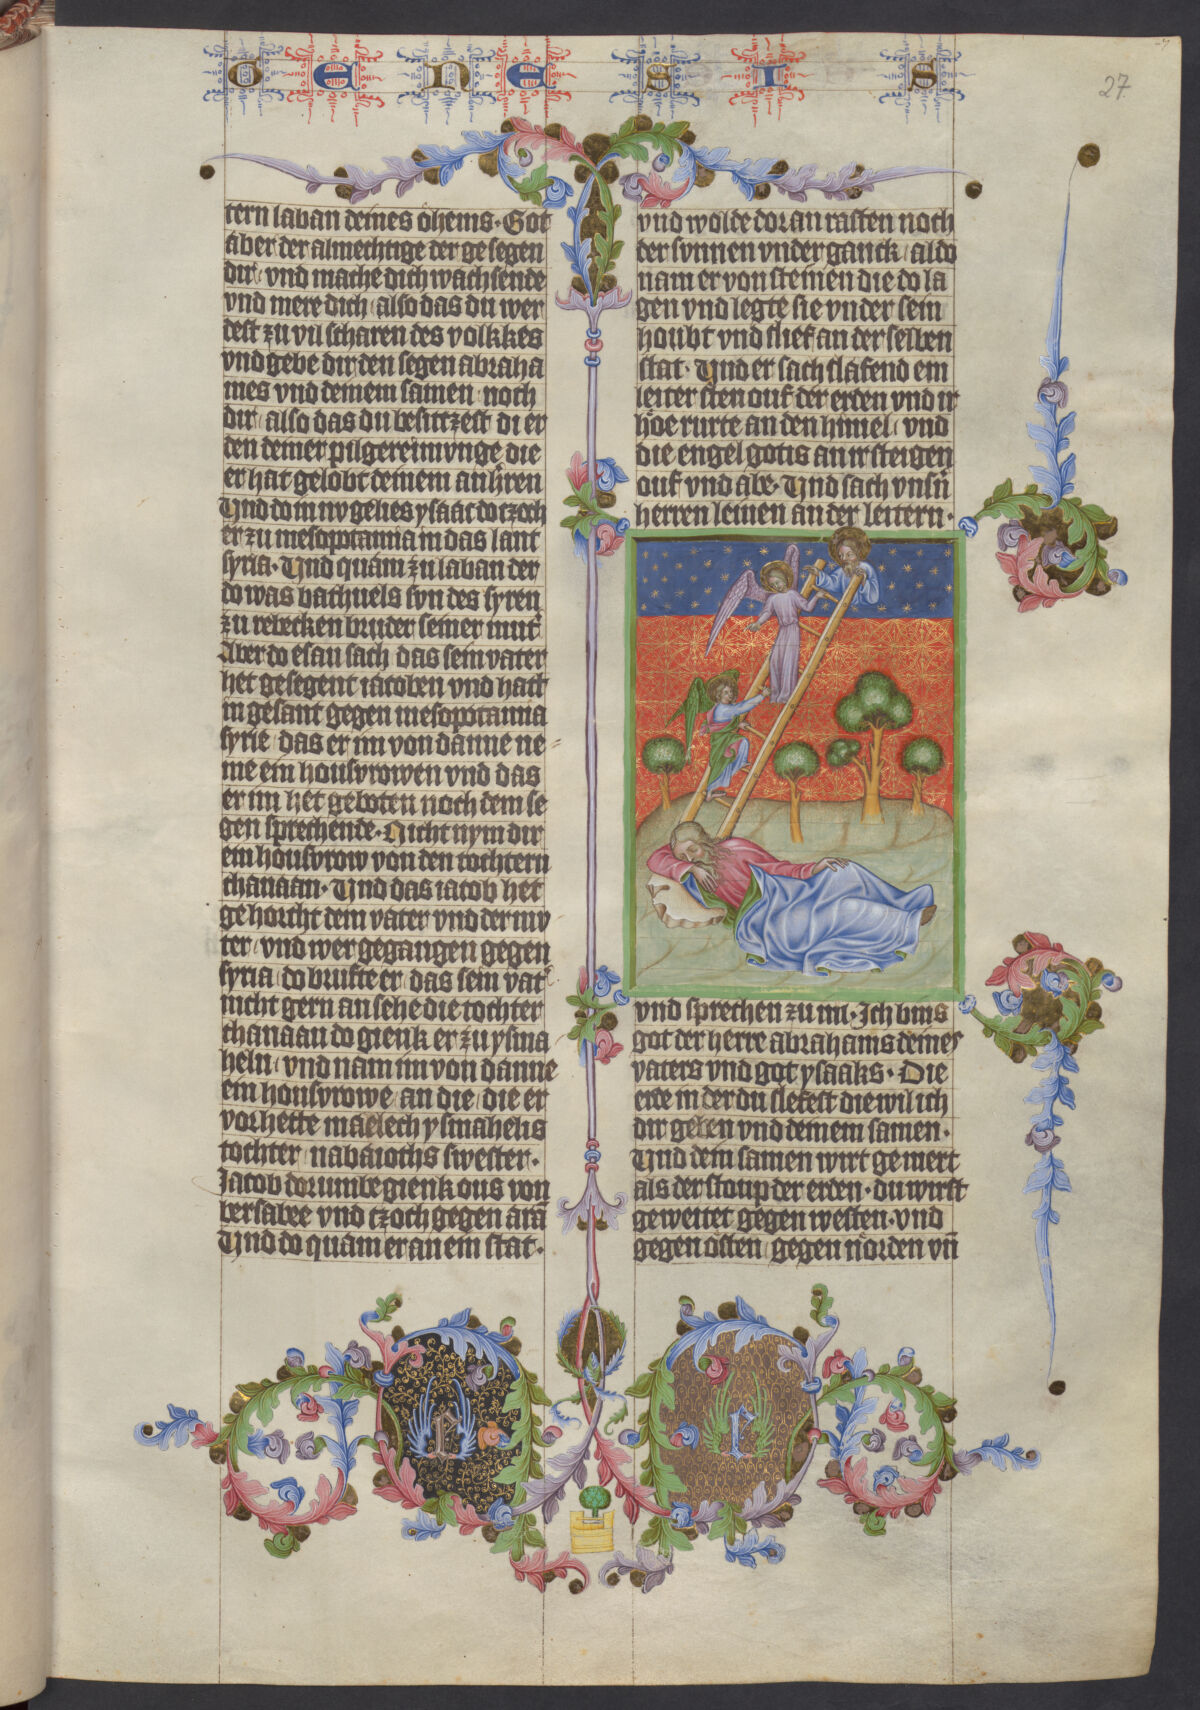 G E N E S I S
27
tern laban deines öhems · Got
aber der almechtige der gesegen
dir / vnd mache dich wachsende
vnd mere dich / also das du wer
dest zu vil scharen des volkkes
vnd gebe dir den segen abraha
mes vnd deinem samen / noch
dir / also das du besitzest di er
den deiner pilgereimvnge die
er hat gelobt deinem anhren
Vnd do in nv gelies ysaac do tzoch
er zu mesopotamia in das lant
syria · Vnd quam zu laban der
do was bathuels svn des syren
zu rebecken bruder seiner mut̉
Aber do esau sach das sein vater
het gesegent iacoben vnd hatt
in gesant gegen mesopotamia
syrie das er im von danne ne
me ein housvrowen vnd das
er im het geboten noch dem se
gen sprechende · Nicht nym dir
ein housvrow von den tochtern
chanaan · Vnd das iacob het
gehorcht dem vater vnd der mv
ter / vnd wer gegangen gegen
syria / do brufte er das sein vat̉
nicht gern an sehe die tochter
chanaan do gienk er zu ysma
heln / vnd nam im von danne
ein housvrowe an die / die er
vor hette maelech ysmahelis
tochter nabaioths swester ·
Jacob dorumbe gienk ous von
bersabee vnd tzoch gegen arā
Vnd do quam er an ein stat ·
vnd wolde dor an rasten noch
der svnnen vnder ganck / aldo
nam er von steinen die do la
gen vnd legte sie vnder sein
houbt vnd slief an der selben
stat · Vnd er sach slafend ein
leiter sten ouf der erden vnd ir
höe rurte an den himel / vnd
die engel gotis an ir steigen
ouf vnd abe · Vnd sach vnsn̄
herren leinen an der leitern ·
vnd sprechen zu im · Ich bins
got der herre abrahams deines
vaters vnd got ysaaks · Die
erde in der du slefest die wil ich
dir geben vnd deinem samen ·
Vnd dein samen wirt gemert
als der stoup der erden · du wirst
geweitet gegen westen · vnd
gegen östen / gegen nörden vn̄